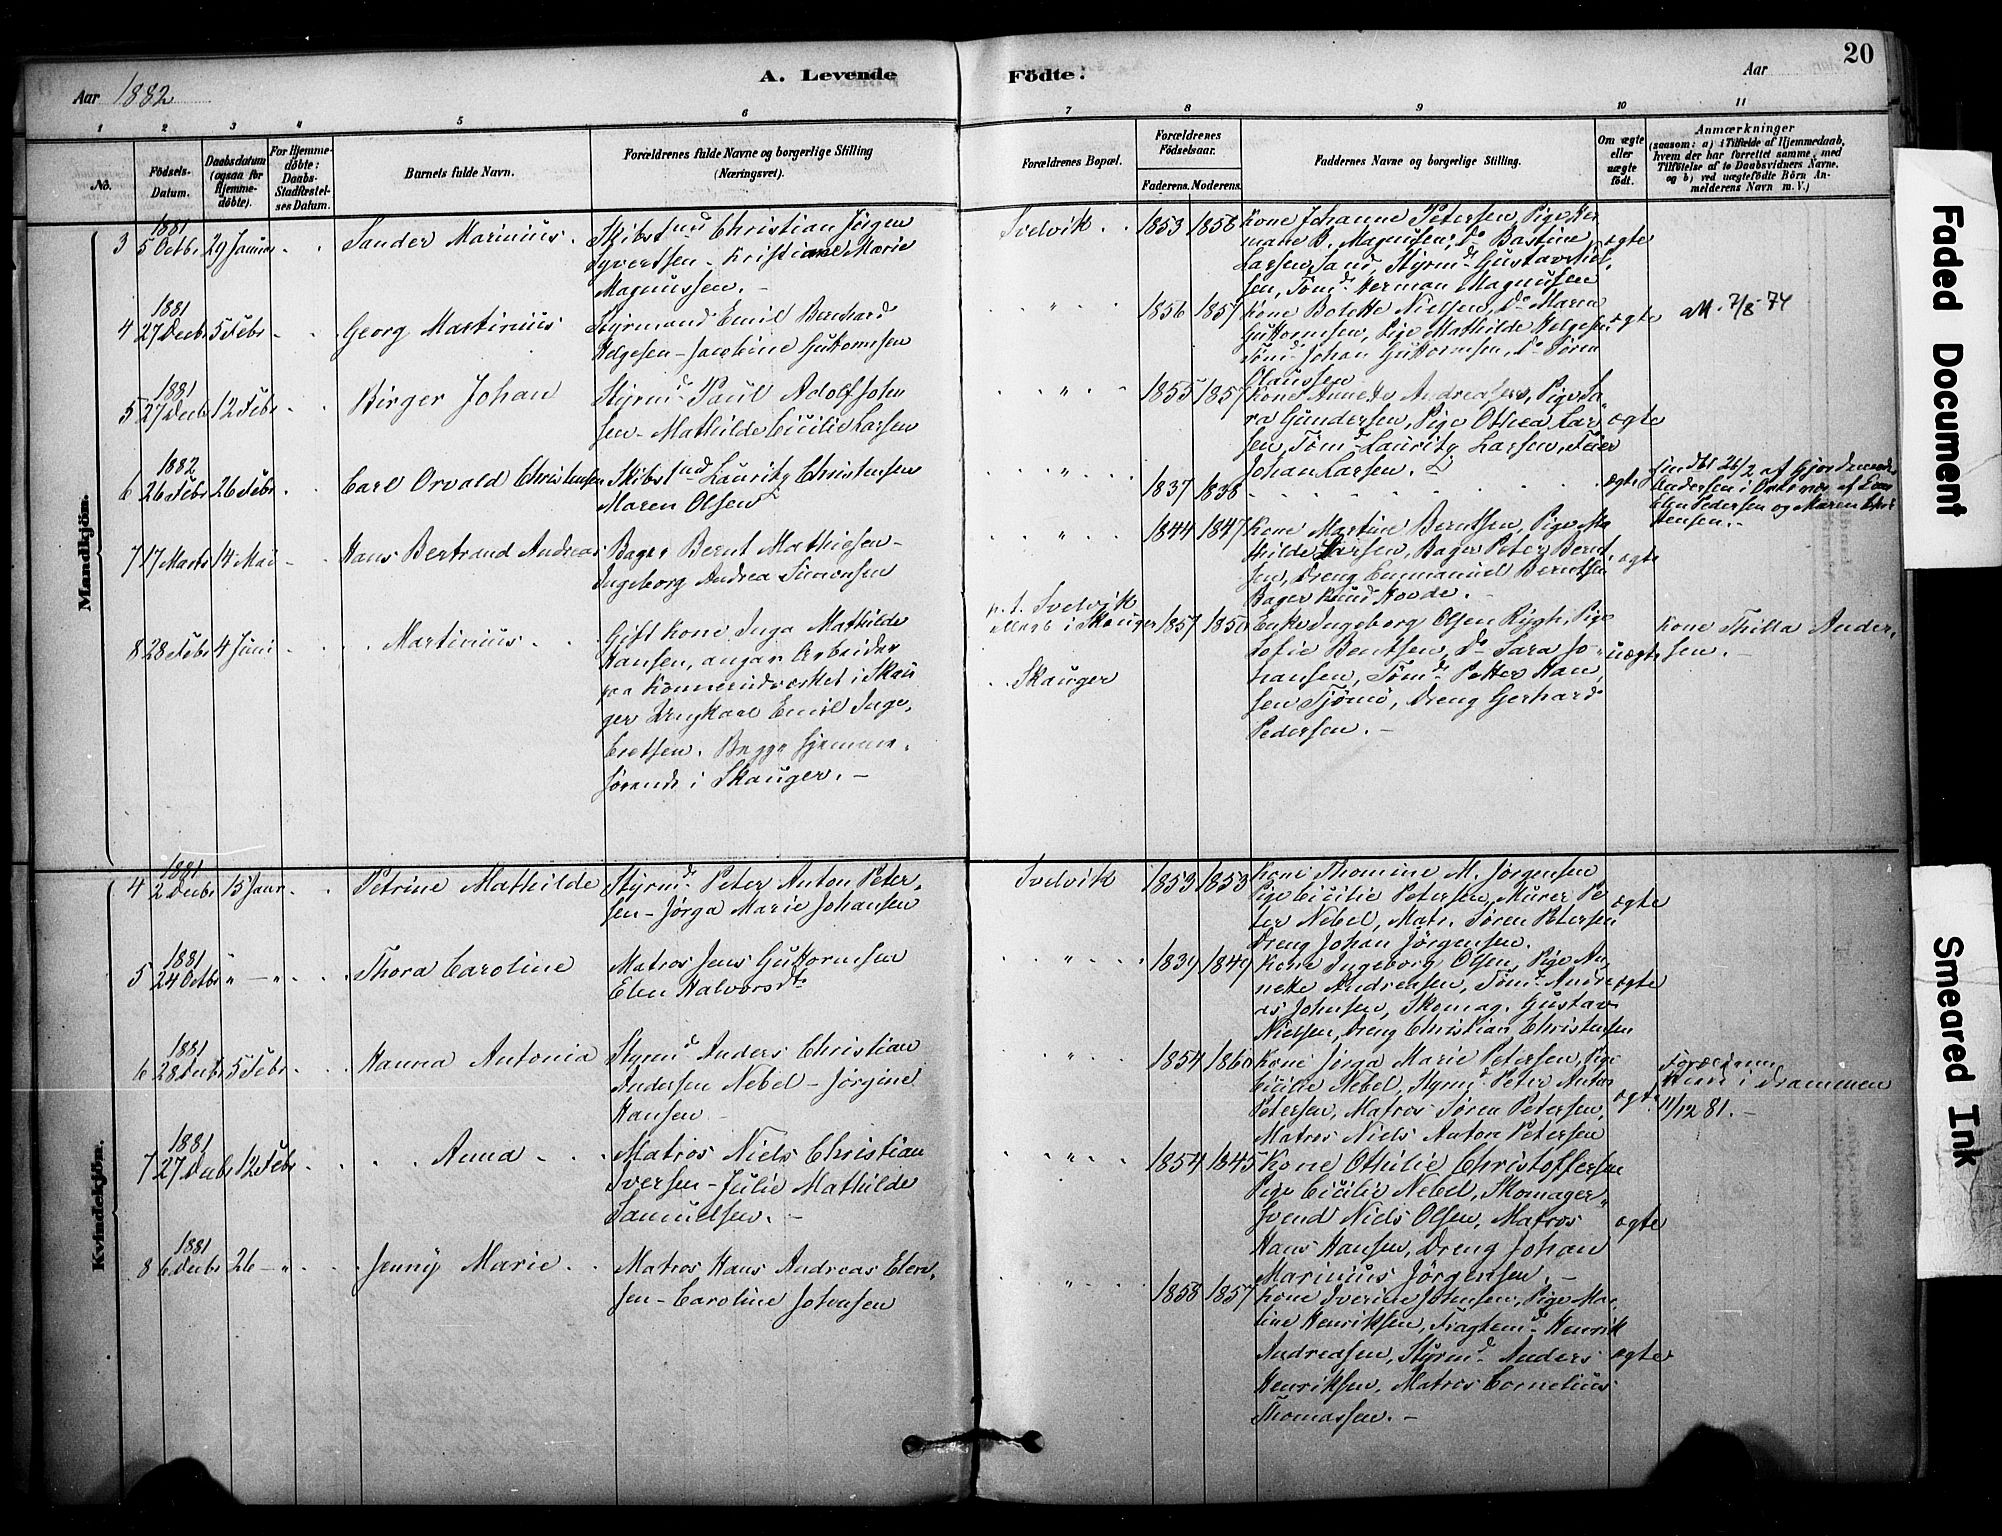 20
A. Levende Födte.
Aar 1882
Aar
1 2 3 4 5 6 7 8 9 10 11
No.
Födsels-
Datum.
Daabsdatum
(ogsaa for
Hjemme-
döbte).
For Hjemme-
döbte:
Daabs-
Stadfæstel-
ses Datum.
Barnets fulde Navn.
Forældrenes fulde Navne og borgerlige Stilling
(Næringsvei).
Forældrenes Bopæl.
Forældrenes
Födselsaar.
Faderens. Moderens.
Faddernes Navne og borgerlige Stilling.
Om ægte
eller
uægte
födt.
Anmærkninger
(saasom: a) i Tilfælde af Hjemmedaab,
hvem der har forrettet samme, med
Tilföielse af to Daabsvidners Navne,
og b) ved uægtefödte Börn An-
melderens Navn m. V.)
Mandkjön.
1881
3 5 Octbr 29 Januar
Sander Marinius.
Skibstmd Christian Jörgen
Syvertsen - Kristiane Marie
Magnussen. -
Svelvik
1853 1856
Kone Johanne Petersen, Pige Her
mane B. Magnusen, Do Bastine
Larsen Sand, Styrmd Gustav
sen, Tömd Herman Magnusen
ægte
1881
4 27 Decbr 5 Febr
Georg Martinius
Styrmand Emil Bernhard
Helgesen - Jacobine Guttormsen
"
1856 1857
Kone Bolette Nielsen, Do Maren
Guttormsen, Pige Mathilde Helgesen
Tömd Johan Guttormsen, Do Sören
Clausen
ægte
M. 7/8 74
1881
5 27 Decbr 12 Febr
Birger Johan
Styrmd Paul Adolf John
sen - Mathilde Cicilie Larsen
"
1855 1857
Kone Annette Andreasen, Pige Sa
ra Gundersen, Pige Othea Lar
sen, Tömd Lauritz Larsen, Faer
Johan Larsen.
ægte
1882
6 26 Febr 26 Febr
Carl Orvald Christensen
Skibstmd Lauritz Christensen
Maren Olsen
"
1837 1838
ægte
26/2 af Gjordemoder
Andersen i
Elen Pedersen og Maren Chri
stensen. -
7 17 Marts 14 Mai
Hans Bertrand Andreas
Bager Bernt Mathiesen -
Ingeborg Andrea Simonsen
"
1844 1847
Kone Martine Berntsen, Pige Ma
thilde Larsen, Bager Peter Bernt
sen, Dreng Emmanuel Berntsen
Bager Knud Hovde. -
ægte
8 28 Febr 4 Juni
Martinius.
Gift Kone Inga Mathilde
Hansen, angav Arbeider
paa i Skau
ger Ungkarl Emil Inge
bretsen. Begge hjemme-
hörende i Skauger. -
p. t. Svelvik
i Skauger
Skauger
1857 1850
Enke Ingeborg Olsen Rygh, Pige
Sofie Bentsen, Do Sara Jo
hansen, Tömd Petter Han
sen Tjömö, Dreng Gerhard
Pedersen. -
uægte
Kone Thilla Ander,
sen. -
Kvindekjön.
1881
4 2 Decbr 15 Janr
Petrine Mathilde
Styrmd Peter Anton Peter,
sen - Jörga Marie Johansen
Svelvik
1853 1853
Kone Thomine M. Jörgensen
Pige Cicilie Petersen, Murer Pe
ter Nebel, Matr. Sören Petersen
Dreng Johan Jörgensen.
ægte
1881
5 24 Octbr " - "
Thora Caroline
Matros Jens Guttormsen
Elen Halvorsdtr
"
1839 1849
Kone Ingeborg Olsen, Pige An
nette Andreasen, Tömd Andre
as Johnsen, Skomag. Gustav
Nielsen, Dreng Christian Christensen
ægte
1881
6 28 Decbr 5 Febr
Hanna Antonia
Styrmd Anders Christian
Andersen Nebel - Jörgine
Hansen -
"
1854 1860
Kone Jörga Marie Petersen, Pige
Cicilie Nebel, Styrmd Peter Anton
Petersen, Matros Sören Petersen,
Matros Niels Anton Petersen
ægte
Forældrene
viede i Drammen
11/12 81. -
1881
7 27 Decbr 12 Febr
Anna
Matros Niels Christian
Iversen - Julie Mathilde
Samuelsen. -
"
1854 1845
Kone Othilie Christoffersen
Pige Cicilie Nebel, Skomager-
svend Niels Olsen, Matros
Hans Hansen, Dreng Johan
Marinius Jörgensen. -
ægte
1881
8 6 Decbr 26 - "
Jenny Marie
Matros Hans Andreas Elen,
sen - Caroline Johnsen
"
1858 1857
Kone Iverine Johnsen, Pige Mar
tine Henriksen, Fragtemd Henrik
Andreasen, Styrmd Anders
Henriksen, Matros Cornelius
Thomassen. -
ægte
Faded Document
Smeared Ink